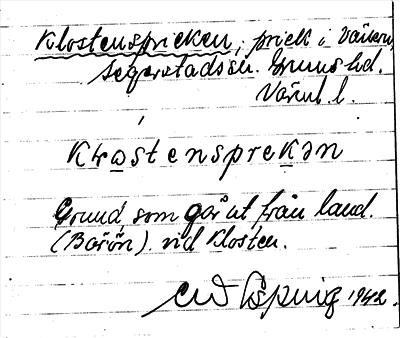 Klostenspricken, prick i Vänern,
Segerstads sn. Grums hd.
Värml. l.
Klostensprekən
Grund, som går ut från land.
(Barön) vid Klosten.
1942.